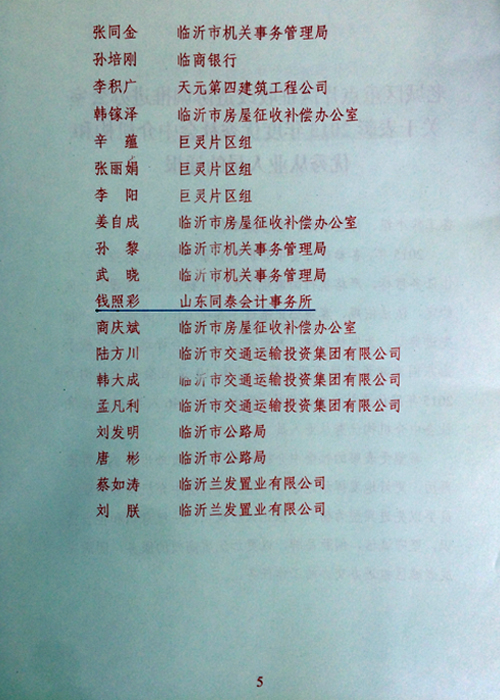 张同金 临沂市机关事务管理局
孙培刚 临商银行
李积广 天元第四建筑工程公司
韩镓泽 临沂市房屋征收补偿办公室
辛蕴 巨灵片区组
张丽娟 巨灵片区组
李阳 巨灵片区组
姜自成 临沂市房屋征收补偿办公室
孙黎 临沂市机关事务管理局
武晓 临沂市机关事务管理局
钱照彩 山东同泰会计事务所
商庆斌 临沂市房屋征收补偿办公室
陆方川 临沂市交通运输投资集团有限公司
韩大成 临沂市交通运输投资集团有限公司
孟凡利 临沂市交通运输投资集团有限公司
刘发明 临沂市公路局
唐彬 临沂市公路局
蔡如涛 临沂兰发置业有限公司
刘朕 临沂兰发置业有限公司
5